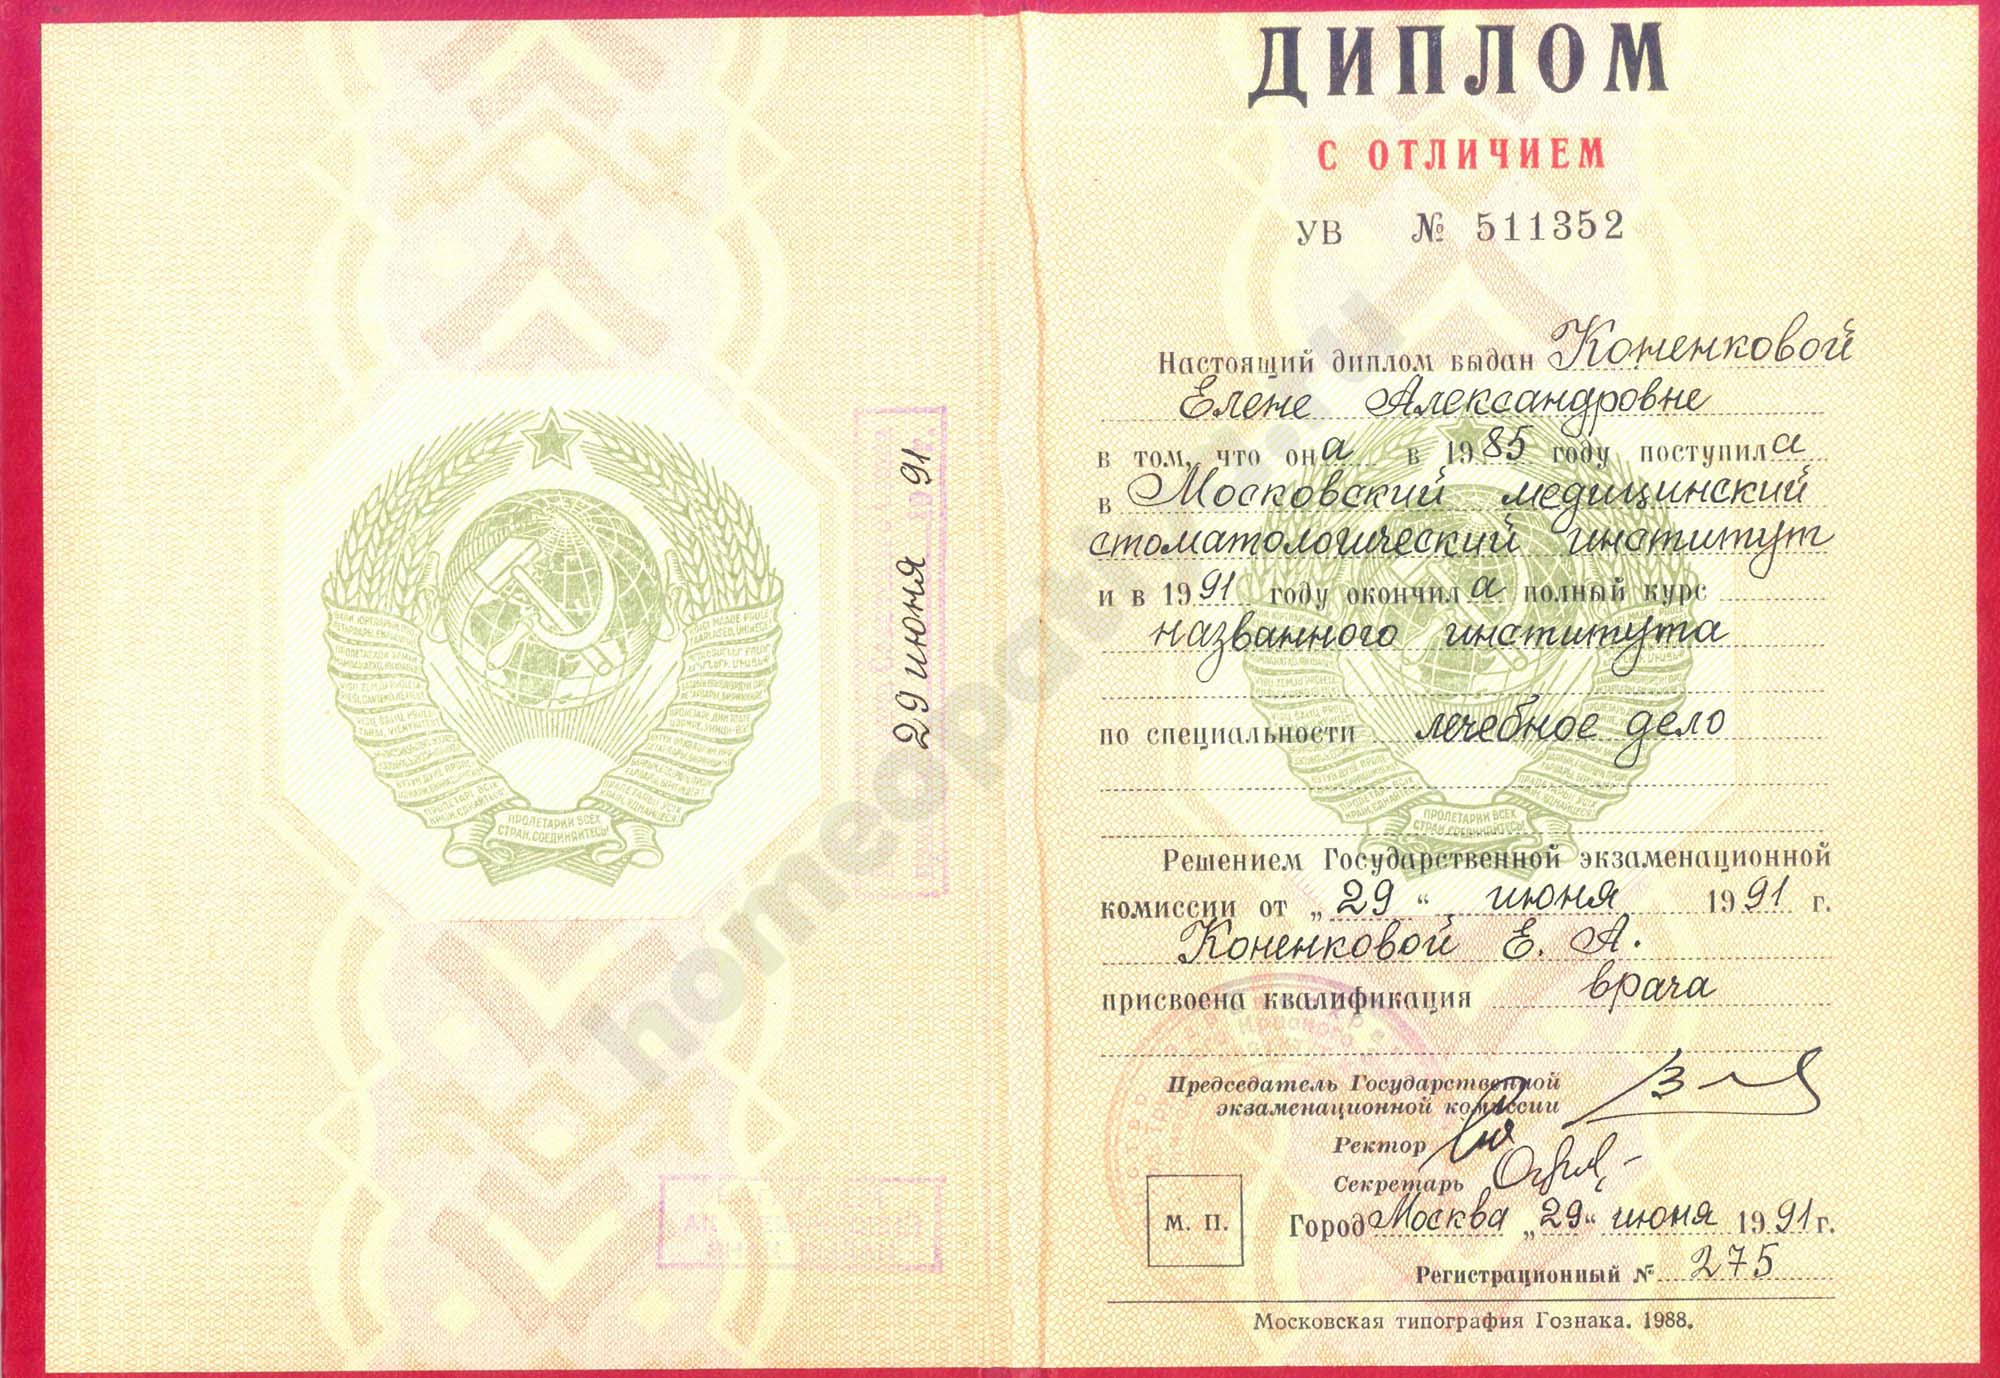 ПРОЛЕТАРИИ ВСЕХ
СТРАН, СОЕДИНЯЙТЕСЬ!
29 июня 1991 г.
homeopat
ДИПЛОМ
С ОТЛИЧИЕМ
УВ № 511352
Настоящий диплом выдан Коненковой
Елене Александровне
в том, что она в 1985 году поступила
в Московский медицинский
стоматологический институт
и в 1991 году окончила полный курс
названного института
по специальности лечебное дело
ПРОЛЕТАРИИ ВСЕХ
СТРАН, СОЕДИНЯЙТЕСЬ!
Решением Государственной экзаменационной
комиссии от „29“ июня 1991 г.
Коненковой Е. А.
присвоена квалификация врача
Председатель Государственной
экзаменационной комиссии
Ректор
Секретарь
М. П.
Город Москва „29“ июня 1991 г.
Регистрационный № 275
Московская типография Гознака. 1988.